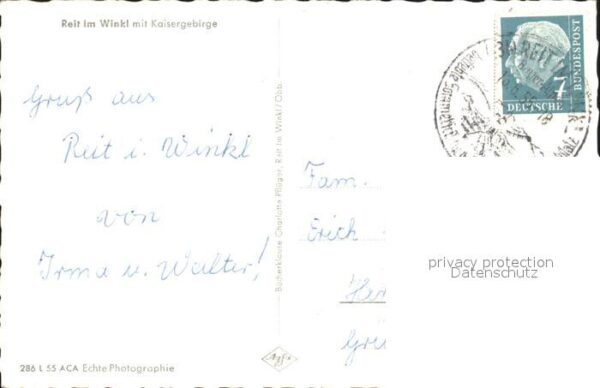 Reit im Winkl mit Kaisergebirge
Gruß aus
Reit i. Winkl
von
Irma u. Walter!
286 L 55 ACA Echte Photographie
Bücherklause Charlotte Pflüger, Reit im Winkl / Obb.
Agfa
7
DEUTSCHE
BUNDESPOST
REIT
Fam.
Erich
privacy protection
Datenschutz